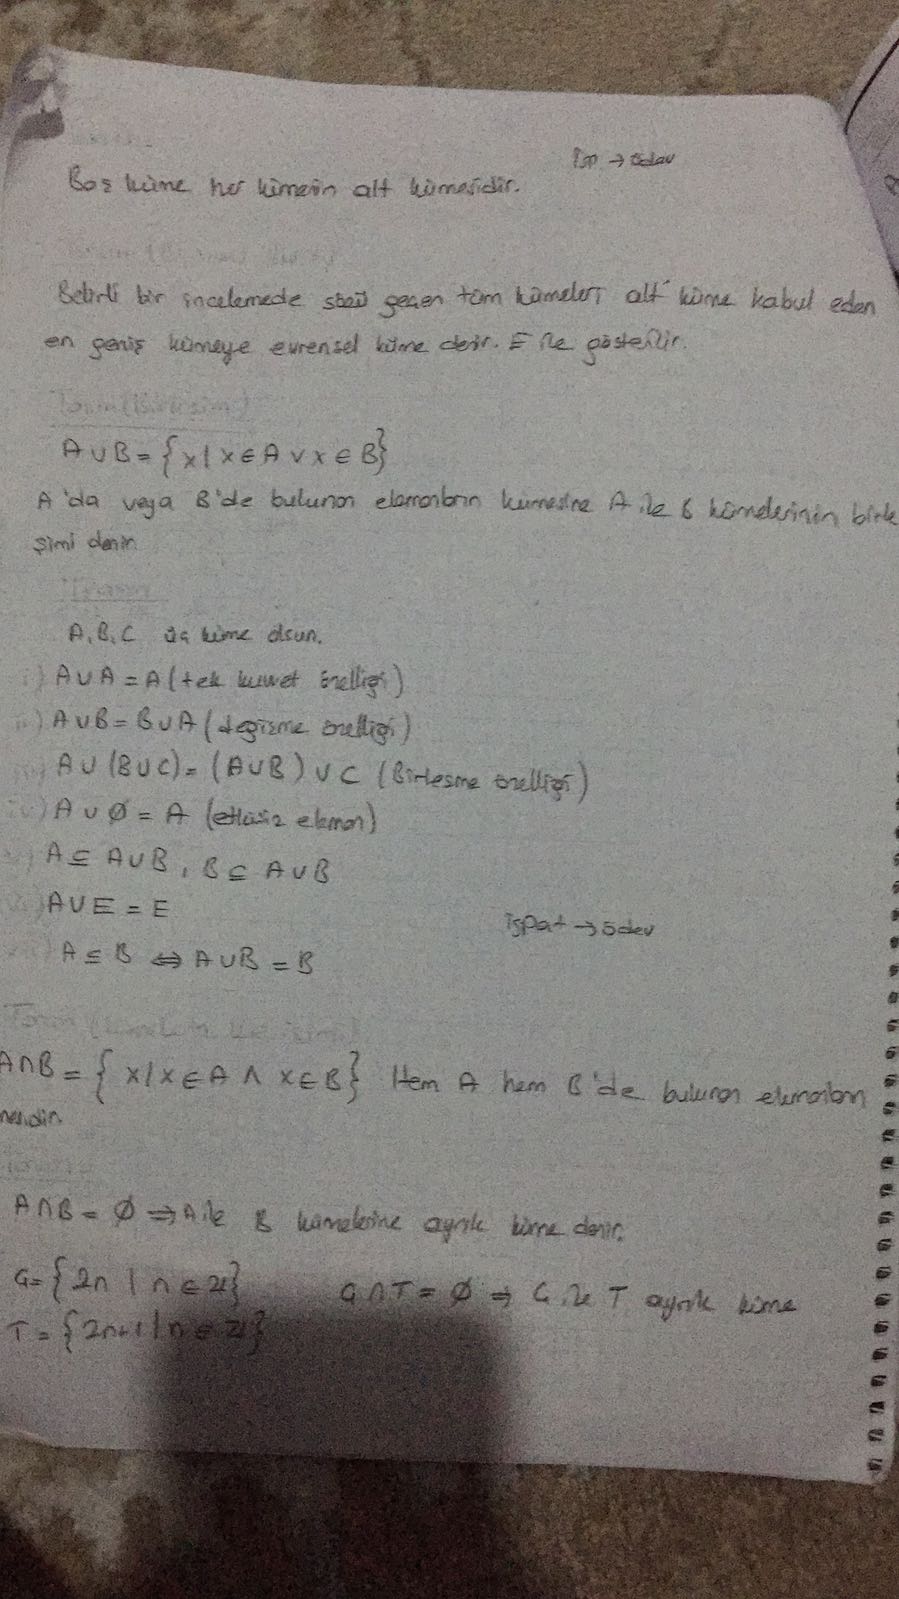 İsp → ödev
Boş küme her kümenin alt kümesidir.
Belirli bir incelemede sözü geçen tüm kümeleri alt küme kabul eden
en geniş kümeye evrensel küme denir. E ile gösterilir.
Tanım (Birleşim)
A∪B = {x | x ∈ A ∨ x ∈ B}
A'da veya B'de bulunan elemanların kümesine A ile B kümelerinin birle
şimi denir.
A, B, C üç küme olsun.
i) A∪A = A (tek kuvvet özelliği)
ii) A∪B = B∪A (değişme özelliği)
iii) A∪(B∪C) = (A∪B)∪C (Birleşme özelliği)
iv) A∪∅ = A (etkisiz eleman)
v) A ⊆ A∪B, B ⊆ A∪B
A∪E = E
ispat → ödev
A ⊆ B ⇔ A∪B = B
A∩B = {x | x ∈ A ∧ x ∈ B} Hem A hem B'de bulunan elemanların
A∩B = ∅ ⇒ A ile B kümelerine ayrık küme denir.
G = {2n | n ∈ Z} G∩T = ∅ ⇒ G ile T ayrık küme
T = {2n+1 | n ∈ Z}